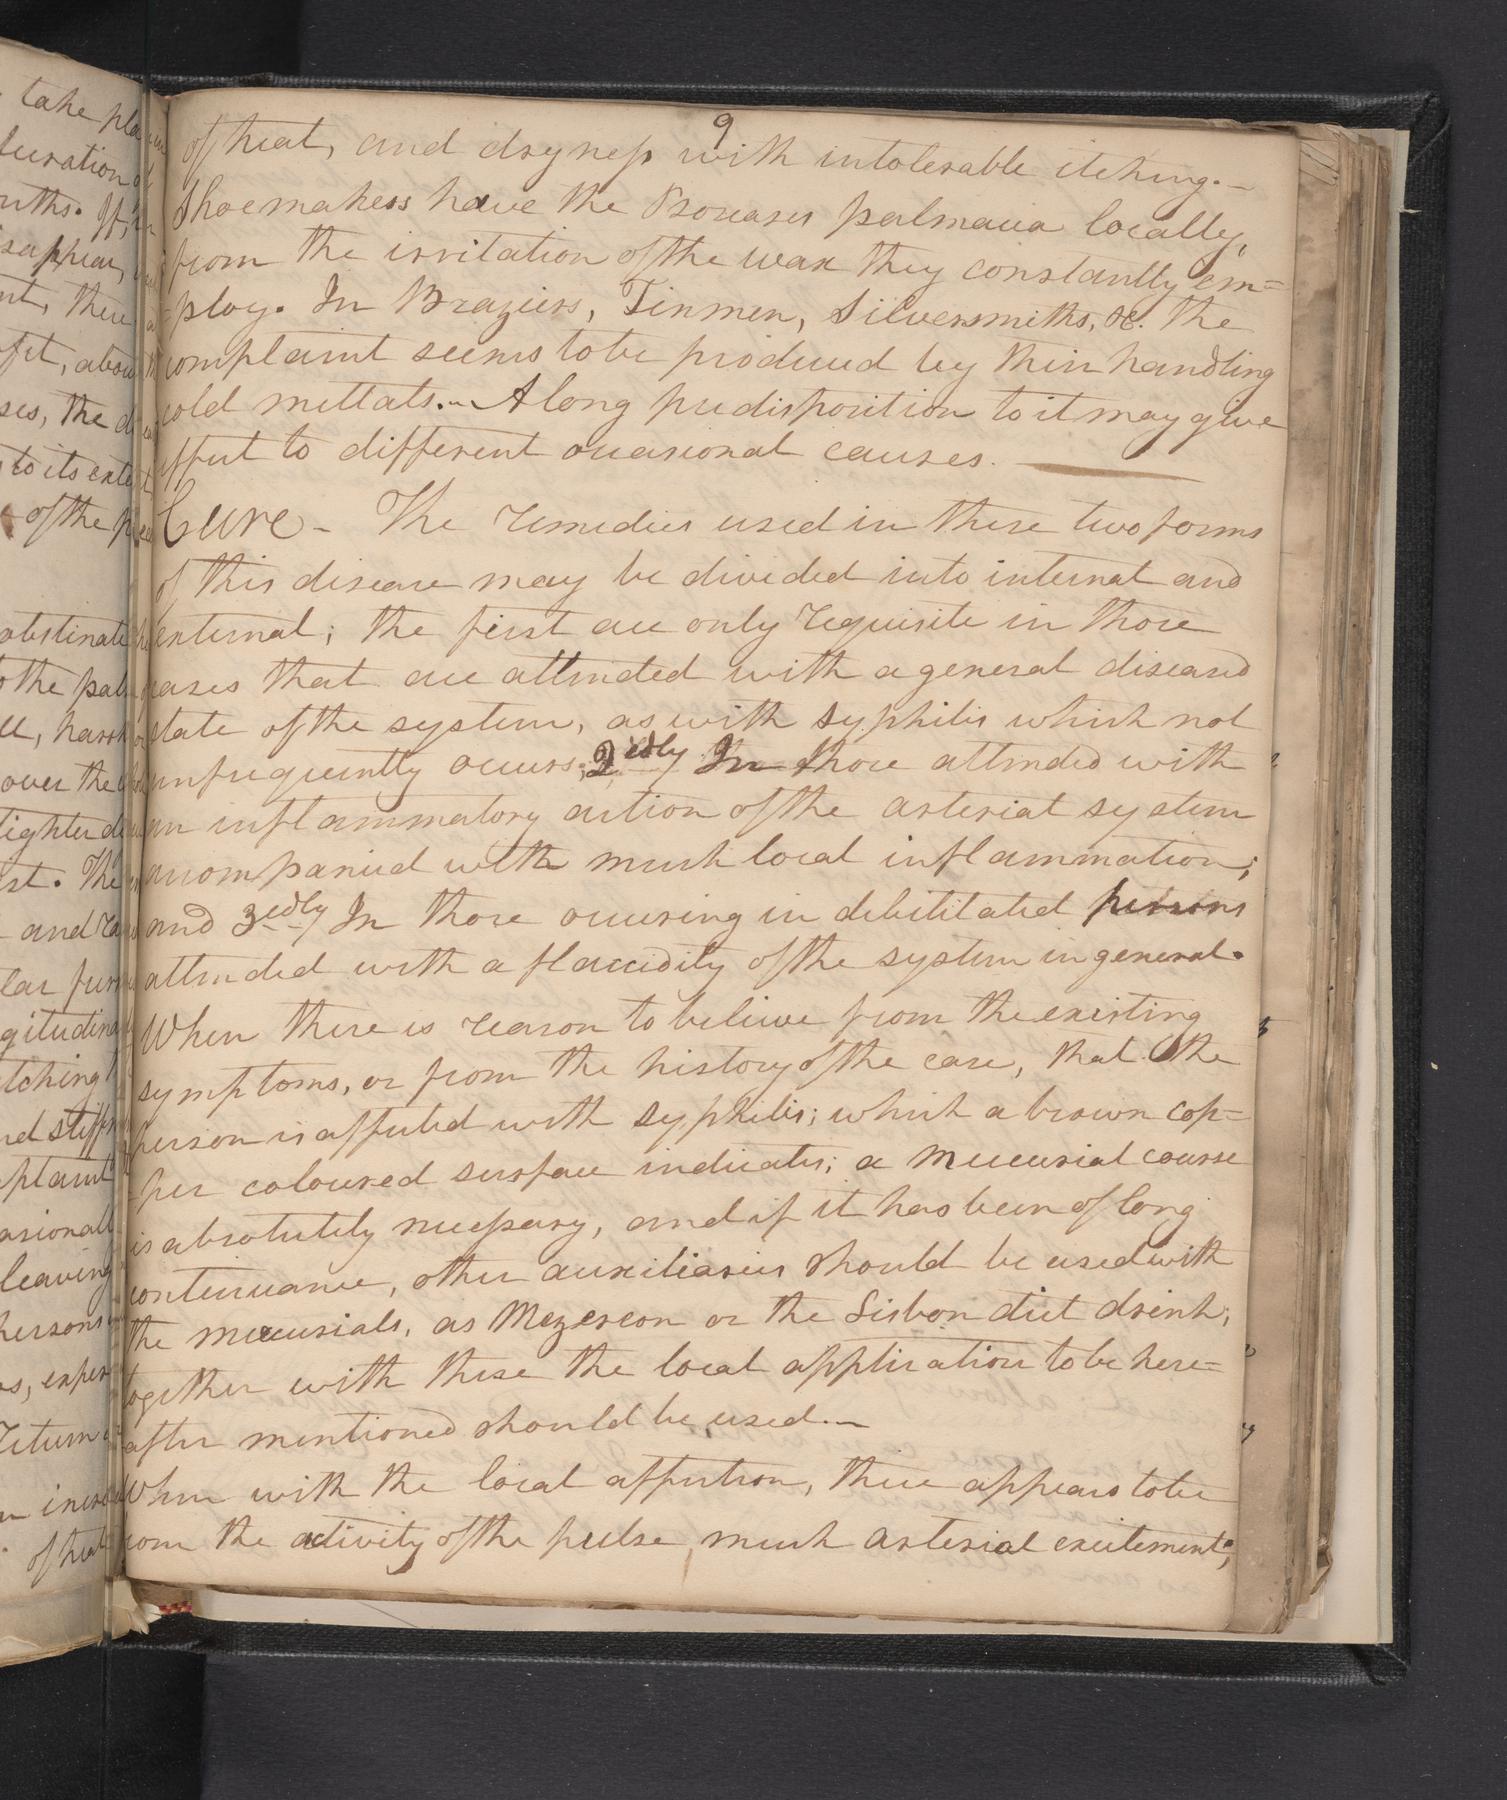 9
of heat, and dryness with intolerable itching.—
Shoemakers have the Psoreases palmaria locally,
from the irritation of the wax they constantly em=
=ploy. In Braziers, Tinmen, Silversmiths, &c. the
complaint seems to be produced by their handling
cold mettals.— A long predisposition to it may give
effect to different occasional causes.
Cure - The remedies used in these two forms
of this disease may be divided into internal and
external; the first are only requisite in those
cases that are attended with a general diseased
state of the system, as with syphilis which not
unfrequently occurs; 2edly In those attended with
an inflammatory action of the arterial system
accompanied with much local inflammation;
and 3edly In those occuring in debilitated persons
attended with a flaccidity of the system in general.
When there is reason to believe from the existing
symptoms, or from the history of the case, that the
person is affected with syphilis; which a brown cop=
per coloured surface indicates; a Mercurial course
is absolutely necessary, and if it has been of long
continuance, other auxiliaries should be used with
the mercurials, as Mezereon or the Lisbon diet drink;
together with these the local application to be here=
after mentioned should be used.—
When with the local affection, there appears to be
from the activity of the pulse much arterial excitement;